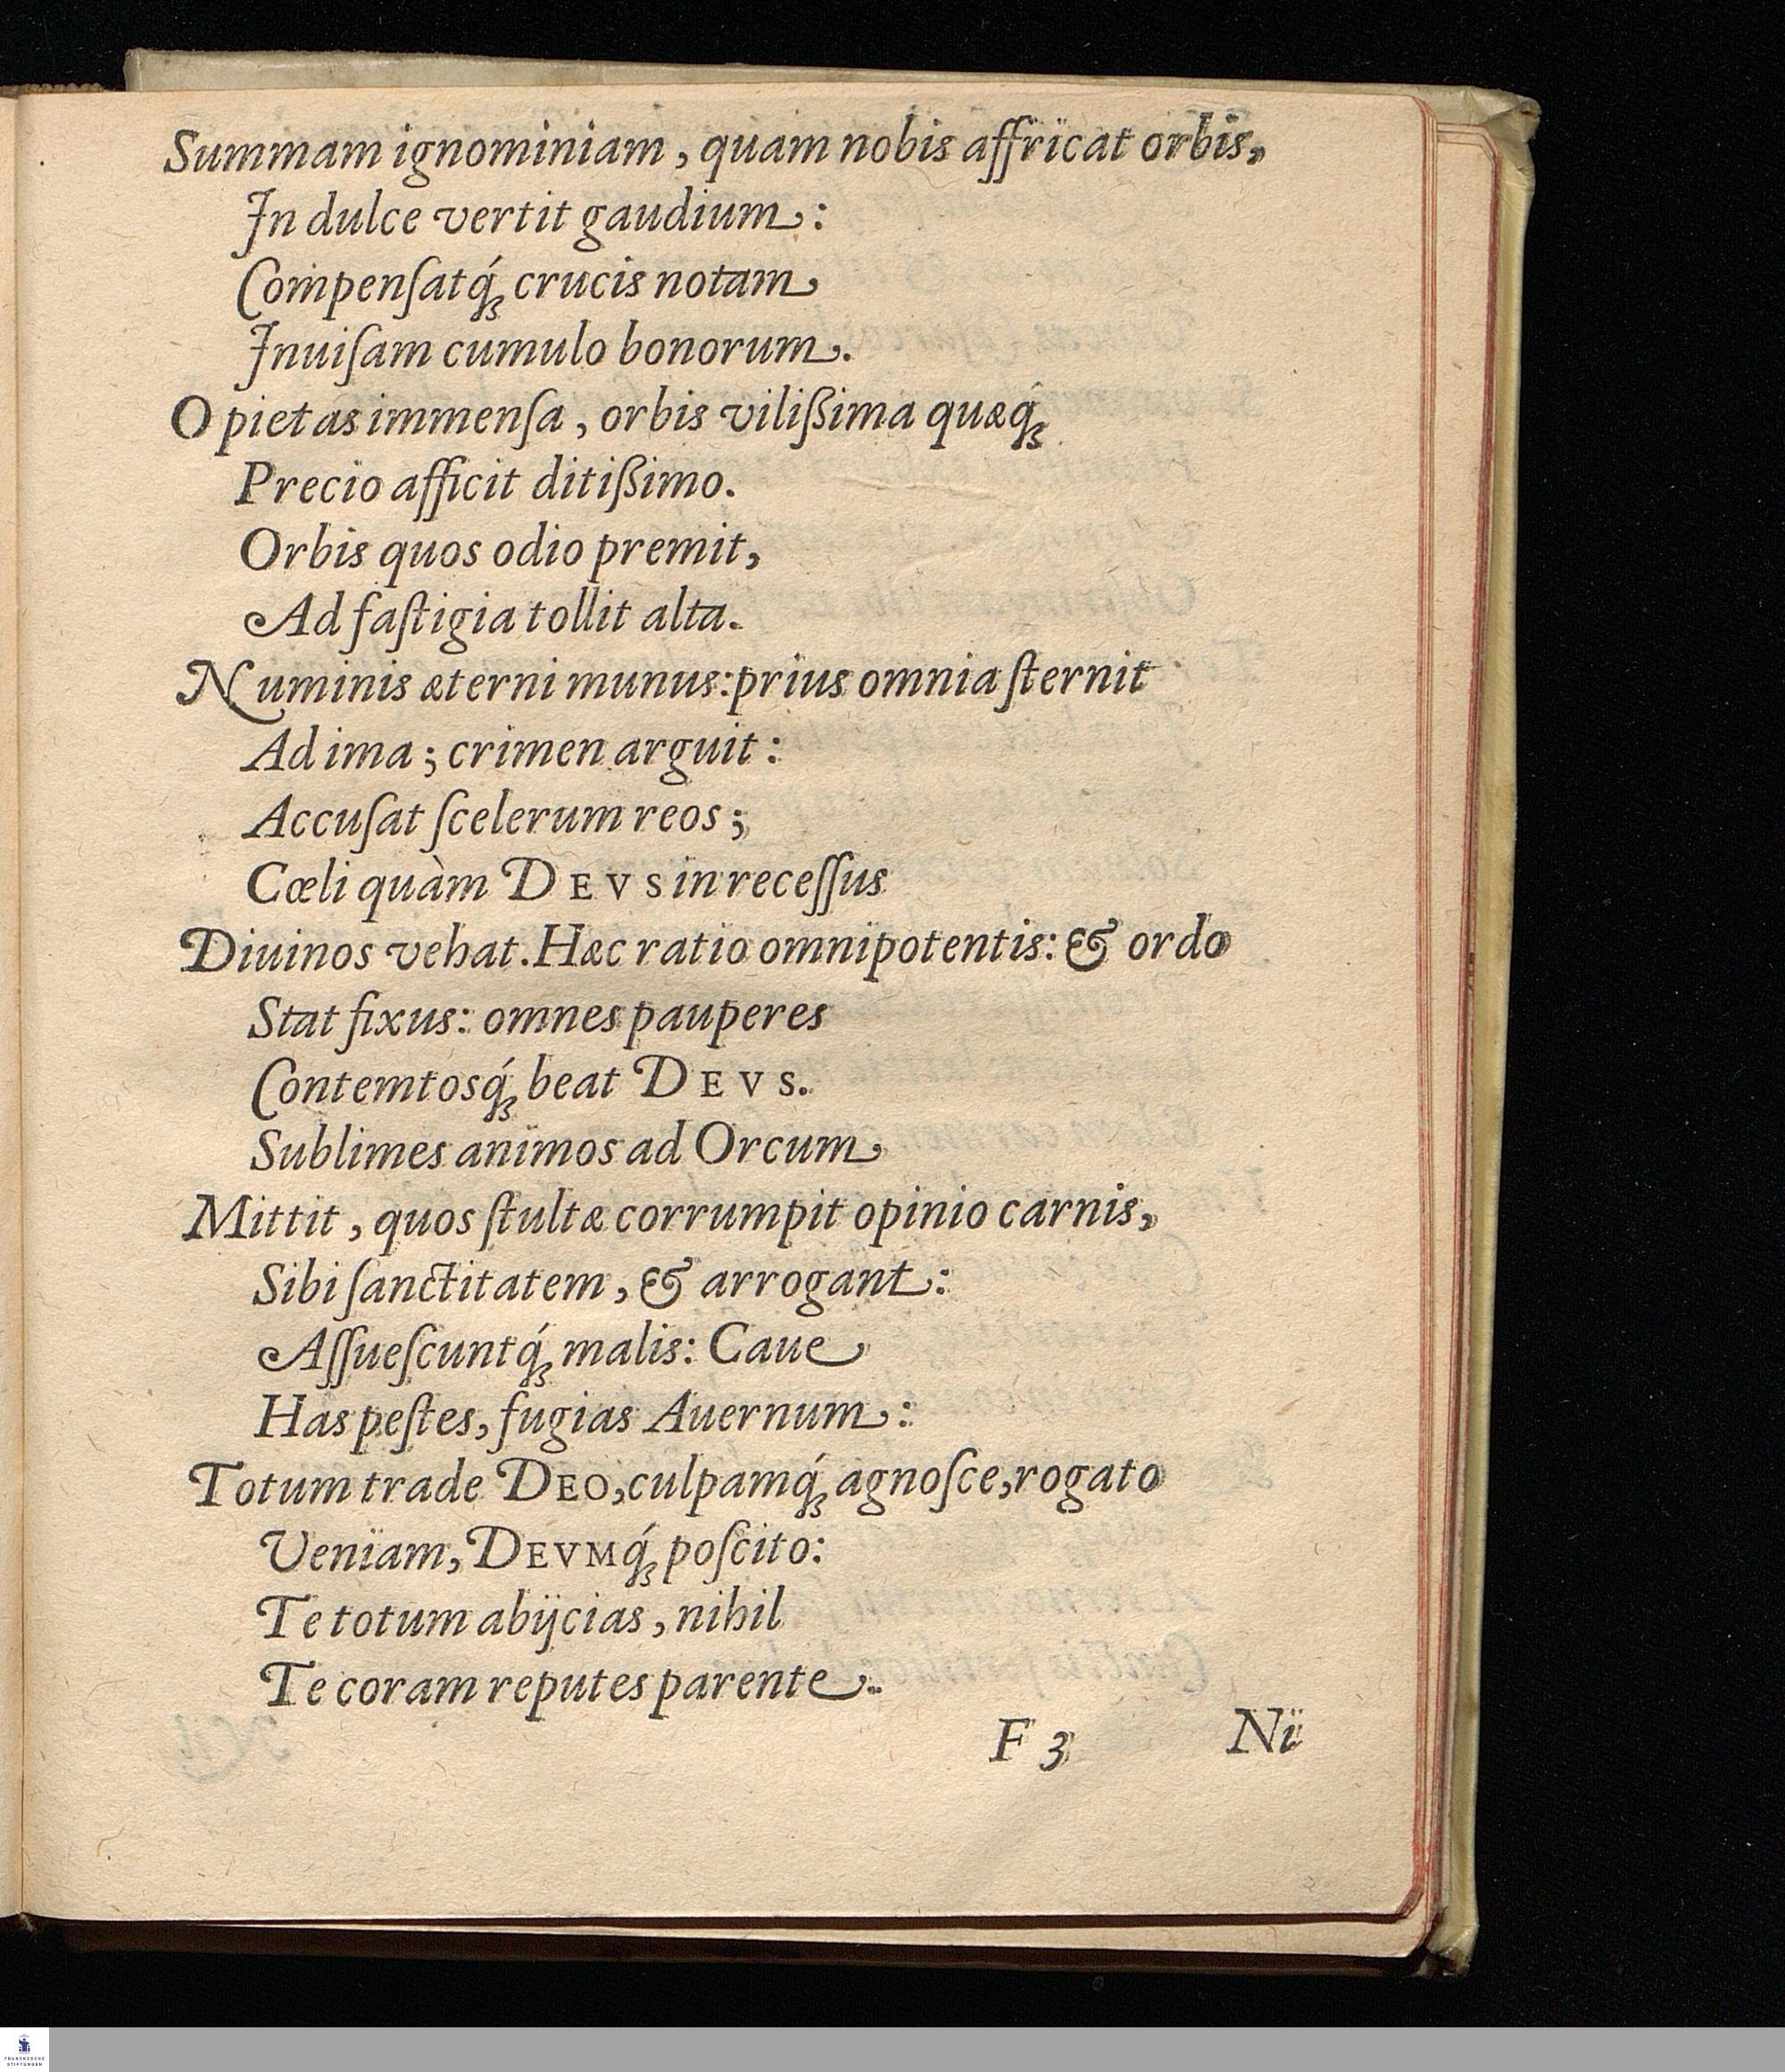 Summam ignominiam, quam nobis affricat orbis,
In dulce vertit gaudium:
Compenſatq́ꝫ crucis notam
Inuiſam cumulo bonorum.
O pietas immenſa, orbis vilißima quæq́ꝫ
Precio afficit ditißimo.
Orbis quos odio premit,
Ad faſtigia tollit alta.
Numinis æterni munus: prius omnia ſternit
Ad ima; crimen arguit:
Accuſat ſcelerum reos;
Cœli quàm DEVS in receſſus
Diuinos vehat. Hæc ratio omnipotentis: & ordo
Stat fixus: omnes pauperes
Contemtosq́ꝫ beat DEVS.
Sublimes animos ad Orcum
Mittit, quos ſtultæ corrumpit opinio carnis,
Sibi ſanctitatem, & arrogant:
Aſſueſcuntq́ꝫ malis: Caue
Has peſtes, fugias Auernum:
Totum trade DEO, culpamq́ꝫ agnoſce, rogato
Veniam, DEVMq́ꝫ poſcito:
Te totum abijcias, nihil
Te coram reputes parente.
F 3 Ni
FRANCKESCHE
STIFTUNGEN